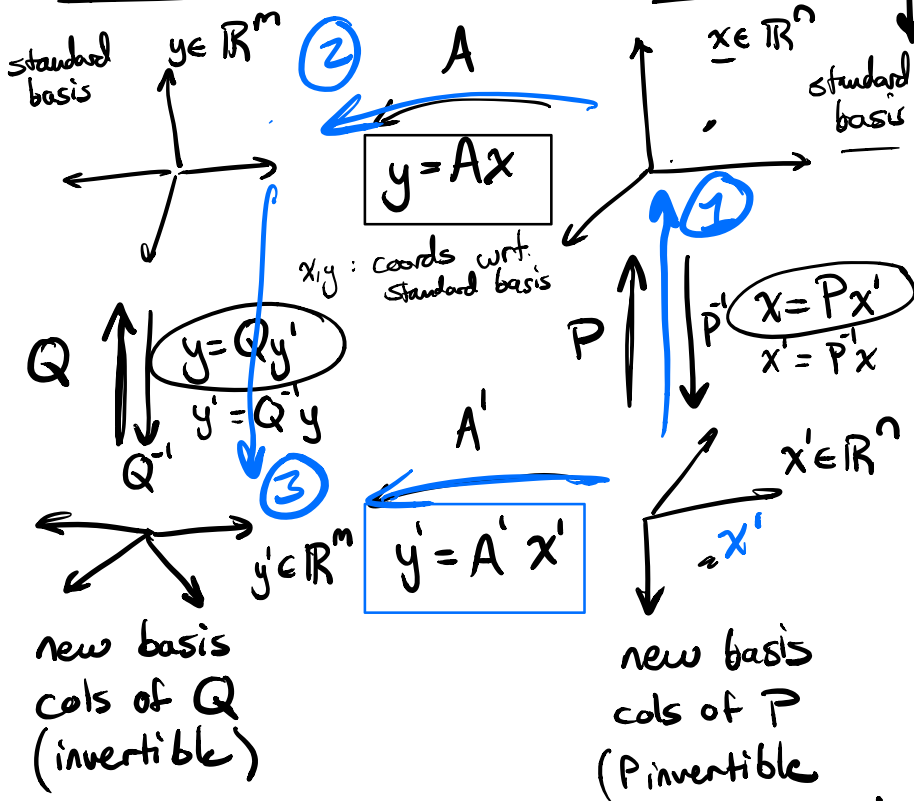 standard basis
y ∈ ℝᵐ
②
A
x ∈ ℝⁿ
standard basis
y = Ax
①
x,y : coords wrt.
standard basis
Q
y = Qy'
y' = Q⁻¹y
Q⁻¹
P
P⁻¹
x = Px'
x' = P⁻¹x
③
A'
x' ∈ ℝⁿ
x'
y' ∈ ℝᵐ
y' = A' x'
new basis
cols of Q
(invertible)
new basis
cols of P
(P invertible